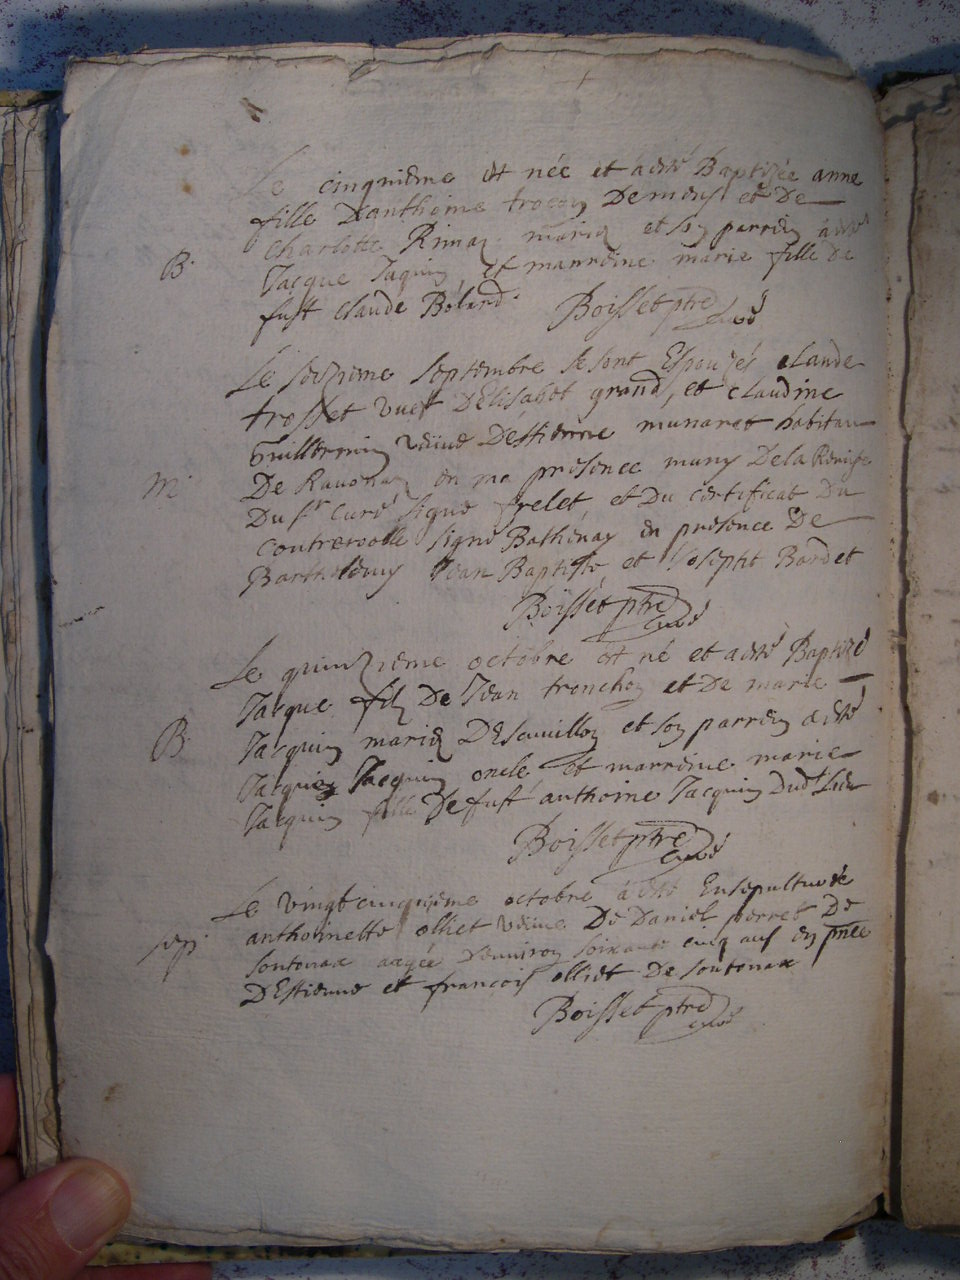 Le cinquième est née et a esté Baptizée anne
fille Danthoine troccon Demons et De
Charlotte Rimaz mariez et son parrein a esté
B. Jacque Jaquin et marreine marie fille De
fust Claude Bolard
Boisset ptre curé
Le seizieme septembre se sont Espousés Claude
trosset vuef D'Elisabet grand, et Claudine
Guillermin veuve D'Estienne munaret habitan
m. De en ma presence muny De la Remise
Du sr Curé signé frelet, et Du certificat Du
controrolle signé Bathenay en presence De
Barthelemy Jean Baptiste et Joseptt Bardet
Boisset ptre curé
Le quinzieme octobre est né et a esté Baptizé
Jacque fils De Jean tronchon et De marie
B. Jacquin mariez et son parrein a esté
Jacques Jacquin oncle et marreine marie
Jacquin fille De fust anthoine Jacquin Dud. Lieu
Boisset ptre curé
Le vingtcinquieme octobre a esté Ensepulturée
anthoinette olliet veuve De Daniel perret De
sep. sontonax aagée Denviron soixante cinq ans en pnce
D'Estienne et francois olliet De sontonax
Boisset ptre curé